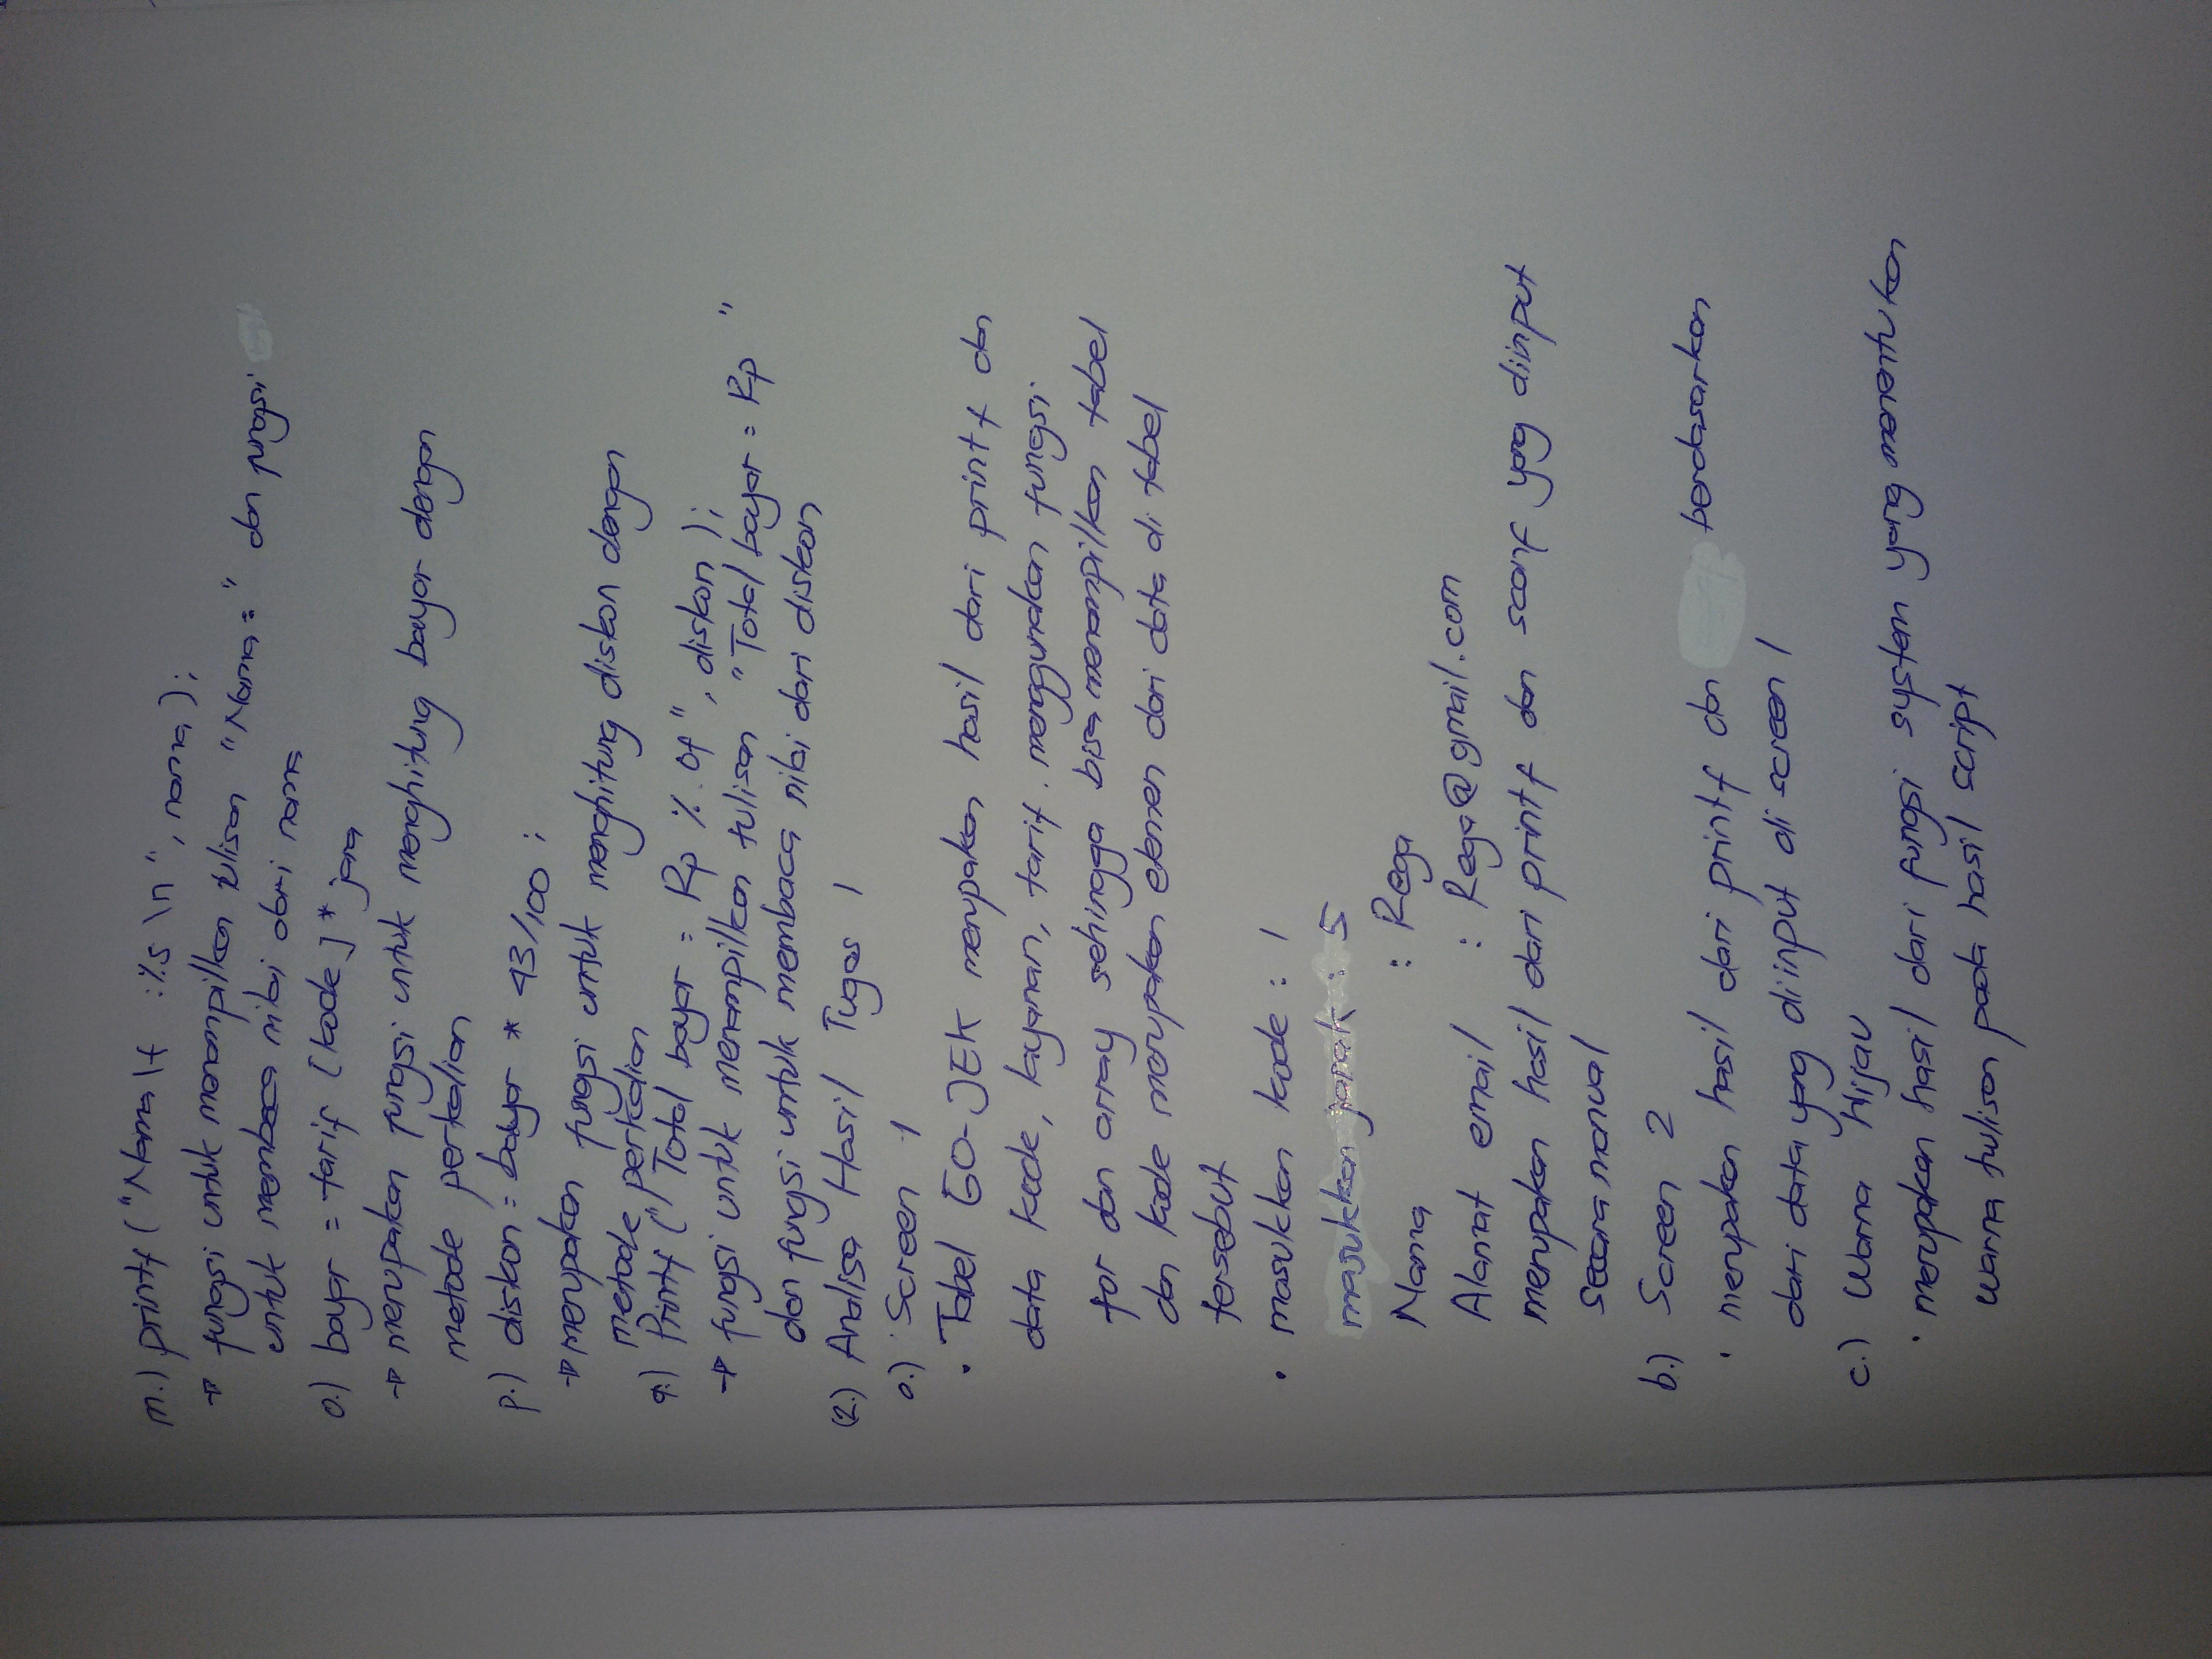 m.) printf ("Nama \t :%s \n", nama);
→ fungsi untuk menampilkan tulisan "Nama =" dan fungsi
untuk membaca nilai dari nama
o.) bayar = tarif [kode] * jara
→ merupakan fungsi untuk menghitung bayar dengan
metode perkalian
p.) diskon = bayar * 43/100 ;
→ merupakan fungsi untuk menghitung diskon dengan
metode perkalian
q.) Printf (" Total bayar = Rp %.0f", diskon );
→ fungsi untuk menampilkan tulisan "Total bayar = Rp "
dan fungsi untuk membaca nilai dari diskon
(2.) Analisa Hasil Tugas 1
a.) Screen 1
• Tabel GO-JEK merupakan hasil dari printf dan
data kode, layanan, tarif. menggunakan fungsi
for dan array sehingga bisa menampilkan tabel
dan kode merupakan elemen dari data di tabel
tersebut
• masukkan kode : 1
masukkan jarak : 5
Nama : Rega
Alamat email : Rega@gmail.com
merupakan hasil dari printf dan scanf yang diinput
secara manual
b.) Screen 2
• merupakan hasil dari printf dan berdasarkan
dari data yang diinput di screen 1
c.) Warna Hijau
• merupakan hasil dari fungsi system yang menentukan
warna tulisan pada hasil script